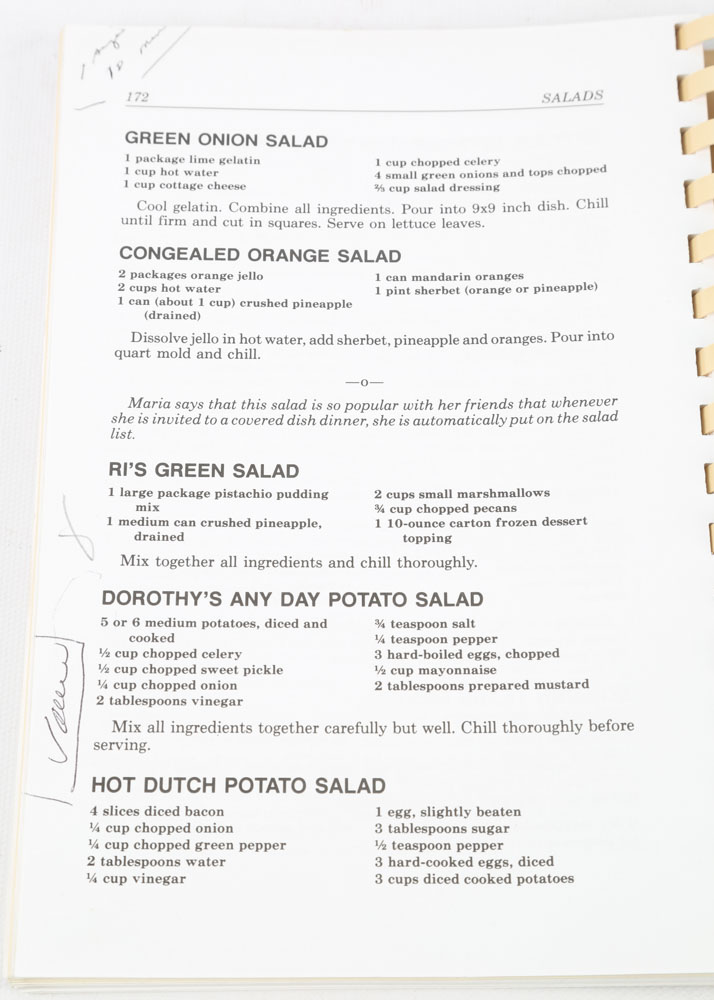 172
SALADS
GREEN ONION SALAD
1 package lime gelatin
1 cup hot water
1 cup cottage cheese
1 cup chopped celery
4 small green onions and tops chopped
⅔ cup salad dressing
Cool gelatin. Combine all ingredients. Pour into 9x9 inch dish. Chill
until firm and cut in squares. Serve on lettuce leaves.
CONGEALED ORANGE SALAD
2 packages orange jello
2 cups hot water
1 can (about 1 cup) crushed pineapple
(drained)
1 can mandarin oranges
1 pint sherbet (orange or pineapple)
Dissolve jello in hot water, add sherbet, pineapple and oranges. Pour into
quart mold and chill.
—o—
Maria says that this salad is so popular with her friends that whenever
she is invited to a covered dish dinner, she is automatically put on the salad
list.
RI'S GREEN SALAD
1 large package pistachio pudding
mix
1 medium can crushed pineapple,
drained
2 cups small marshmallows
¾ cup chopped pecans
1 10-ounce carton frozen dessert
topping
Mix together all ingredients and chill thoroughly.
DOROTHY'S ANY DAY POTATO SALAD
5 or 6 medium potatoes, diced and
cooked
½ cup chopped celery
½ cup chopped sweet pickle
¼ cup chopped onion
2 tablespoons vinegar
¾ teaspoon salt
¼ teaspoon pepper
3 hard-boiled eggs, chopped
½ cup mayonnaise
2 tablespoons prepared mustard
Mix all ingredients together carefully but well. Chill thoroughly before
serving.
HOT DUTCH POTATO SALAD
4 slices diced bacon
¼ cup chopped onion
¼ cup chopped green pepper
2 tablespoons water
¼ cup vinegar
1 egg, slightly beaten
3 tablespoons sugar
½ teaspoon pepper
3 hard-cooked eggs, diced
3 cups diced cooked potatoes